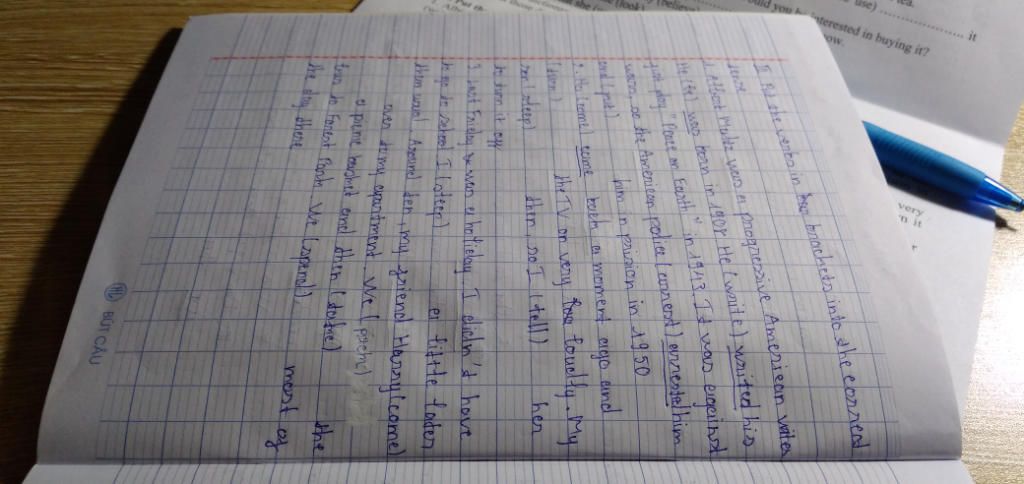 the verbs in the brackets into the corrend
tense
1. Albert Maltz was a progressive American writer
He (be) was born in 1908. He (write) writed his
first play "Peace on Earth" in 1943. It was against
wars so the American police (arrest) him
and (put) him in prision in 1950
2. (come) came back a moment ago and
(turn) the TV on very loudly. My
son (sleep) then so I (tell) her
to turn it off
3. Last Friday was a holiday. I didn't have
to go to school I (sleep) a little later
than usual. Around ten, my friend Harry (come)
over to my apartment. We (pack)
a picnic basket and then (take) the
to Forest Park. We (spend) most of
the day there.
BÚT CHU
Put the
(look)
(believe)
use)
tea.
would you be interested in buying it?
it
very